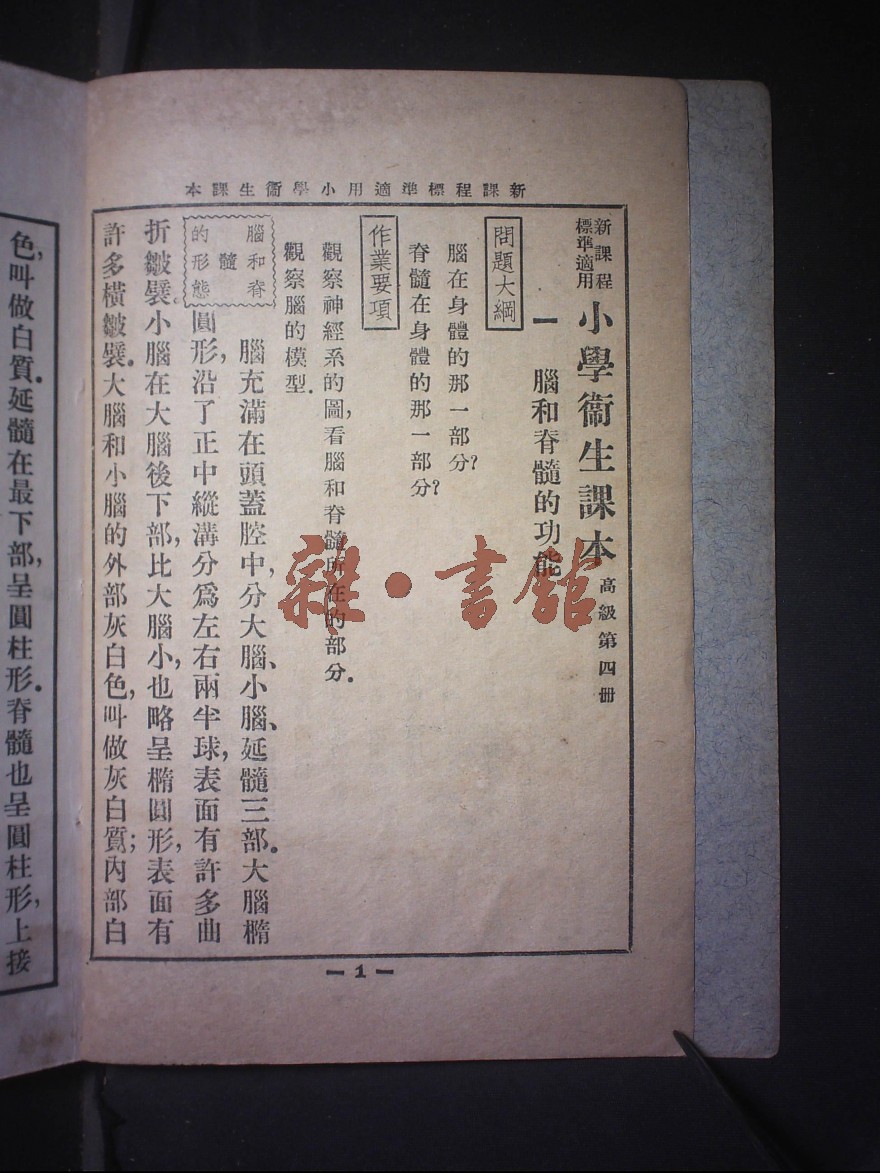 新課程標準適用小學衞生課本
新課程
標準適用
小學衞生課本
高級第四册
一 腦和脊髓的功能
問題大綱
腦在身體的那一部分？
脊髓在身體的那一部分？
作業要項
觀察神經系的圖，看腦和脊髓所在的部分．
觀察腦的模型．
腦和脊
髓
的形態
腦充滿在頭蓋腔中，分大腦、小腦、延髓三部．大腦橢
圓形，沿了正中縱溝分爲左右兩半球，表面有許多曲
折皺襞．小腦在大腦後下部，比大腦小，也略呈橢圓形，表面有
許多橫皺襞．大腦和小腦的外部灰白色，叫做灰白質；內部白
— 1 —
色，叫做白質．延髓在最下部，呈圓柱形．脊髓也呈圓柱形，上接
雜·書館